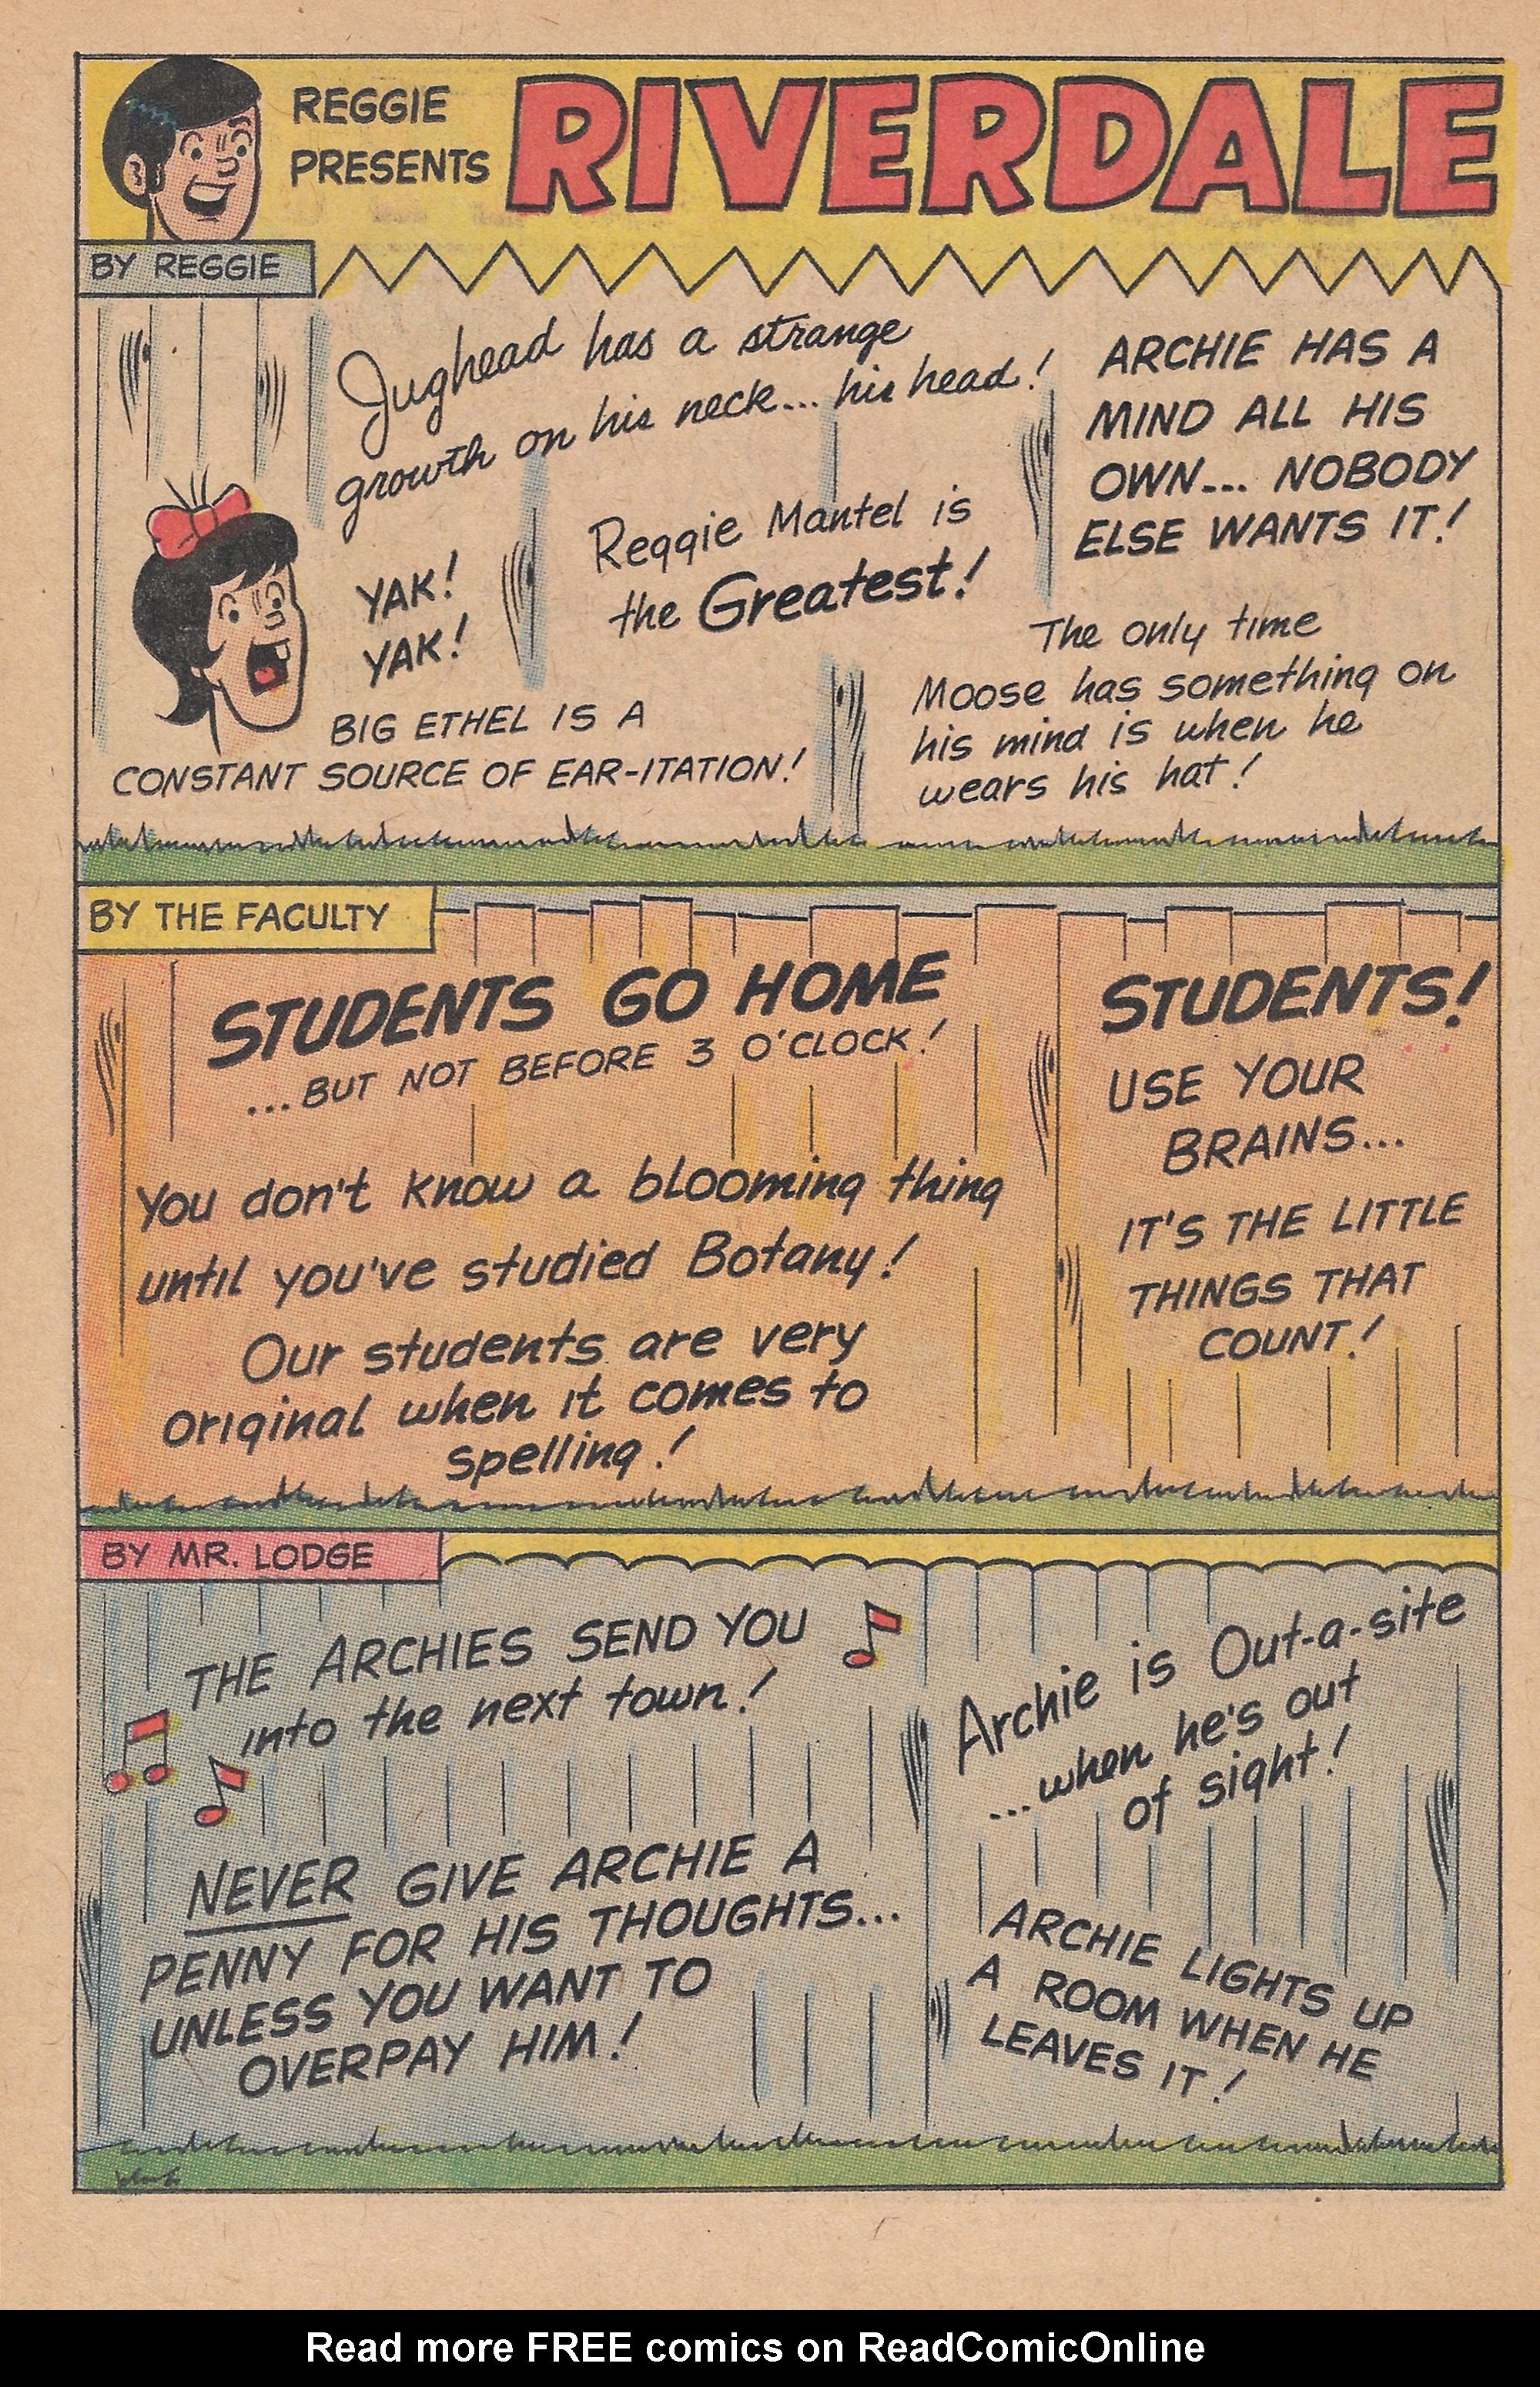 REGGIE
PRESENTS
RIVERDALE
BY REGGIE
Jughead has a strange
growth on his neck... his head!
ARCHIE HAS A
MIND ALL HIS
OWN... NOBODY
ELSE WANTS IT!
Reggie Mantel is
the Greatest!
YAK!
YAK!
BIG ETHEL IS A
CONSTANT SOURCE OF EAR-ITATION!
The only time
Moose has something on
his mind is when he
wears his hat!
BY THE FACULTY
STUDENTS GO HOME
...BUT NOT BEFORE 3 O'CLOCK!
You don't know a blooming thing
until you've studied Botany!
Our students are very
original when it comes to
spelling!
STUDENTS!
USE YOUR
BRAINS...
IT'S THE LITTLE
THINGS THAT
COUNT!
BY MR. LODGE
THE ARCHIES SEND YOU
into the next town!
Archie is Out-a-site
...when he's out
of sight!
NEVER GIVE ARCHIE A
PENNY FOR HIS THOUGHTS...
UNLESS YOU WANT TO
OVERPAY HIM!
ARCHIE LIGHTS UP
A ROOM WHEN HE
LEAVES IT!
Read more FREE comics on ReadComicOnline